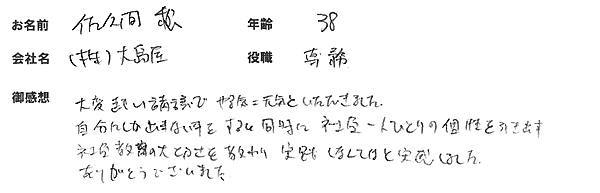 お名前 佐久間 年齢 38
会社名 (株)大島屋 役職 専務
御感想
大変熱い講議で やる気と元気をいただきました。
自分にしか出来ない事をすると同時に 社員一人ひとりの個性を引き出す
社員教育の大切さを教わり 実践しなくてはと実感しました。
ありがとうございました。